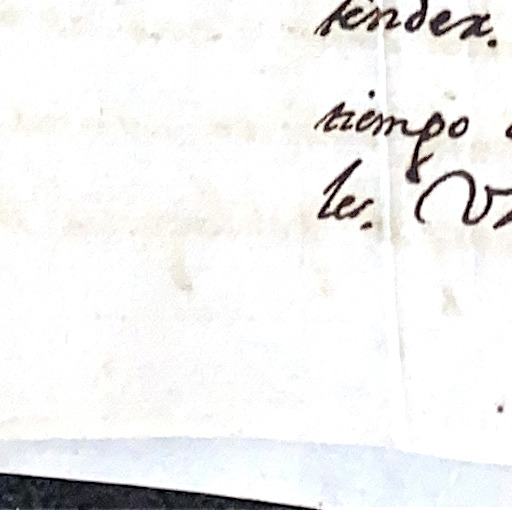 tender.
tiempo
les.